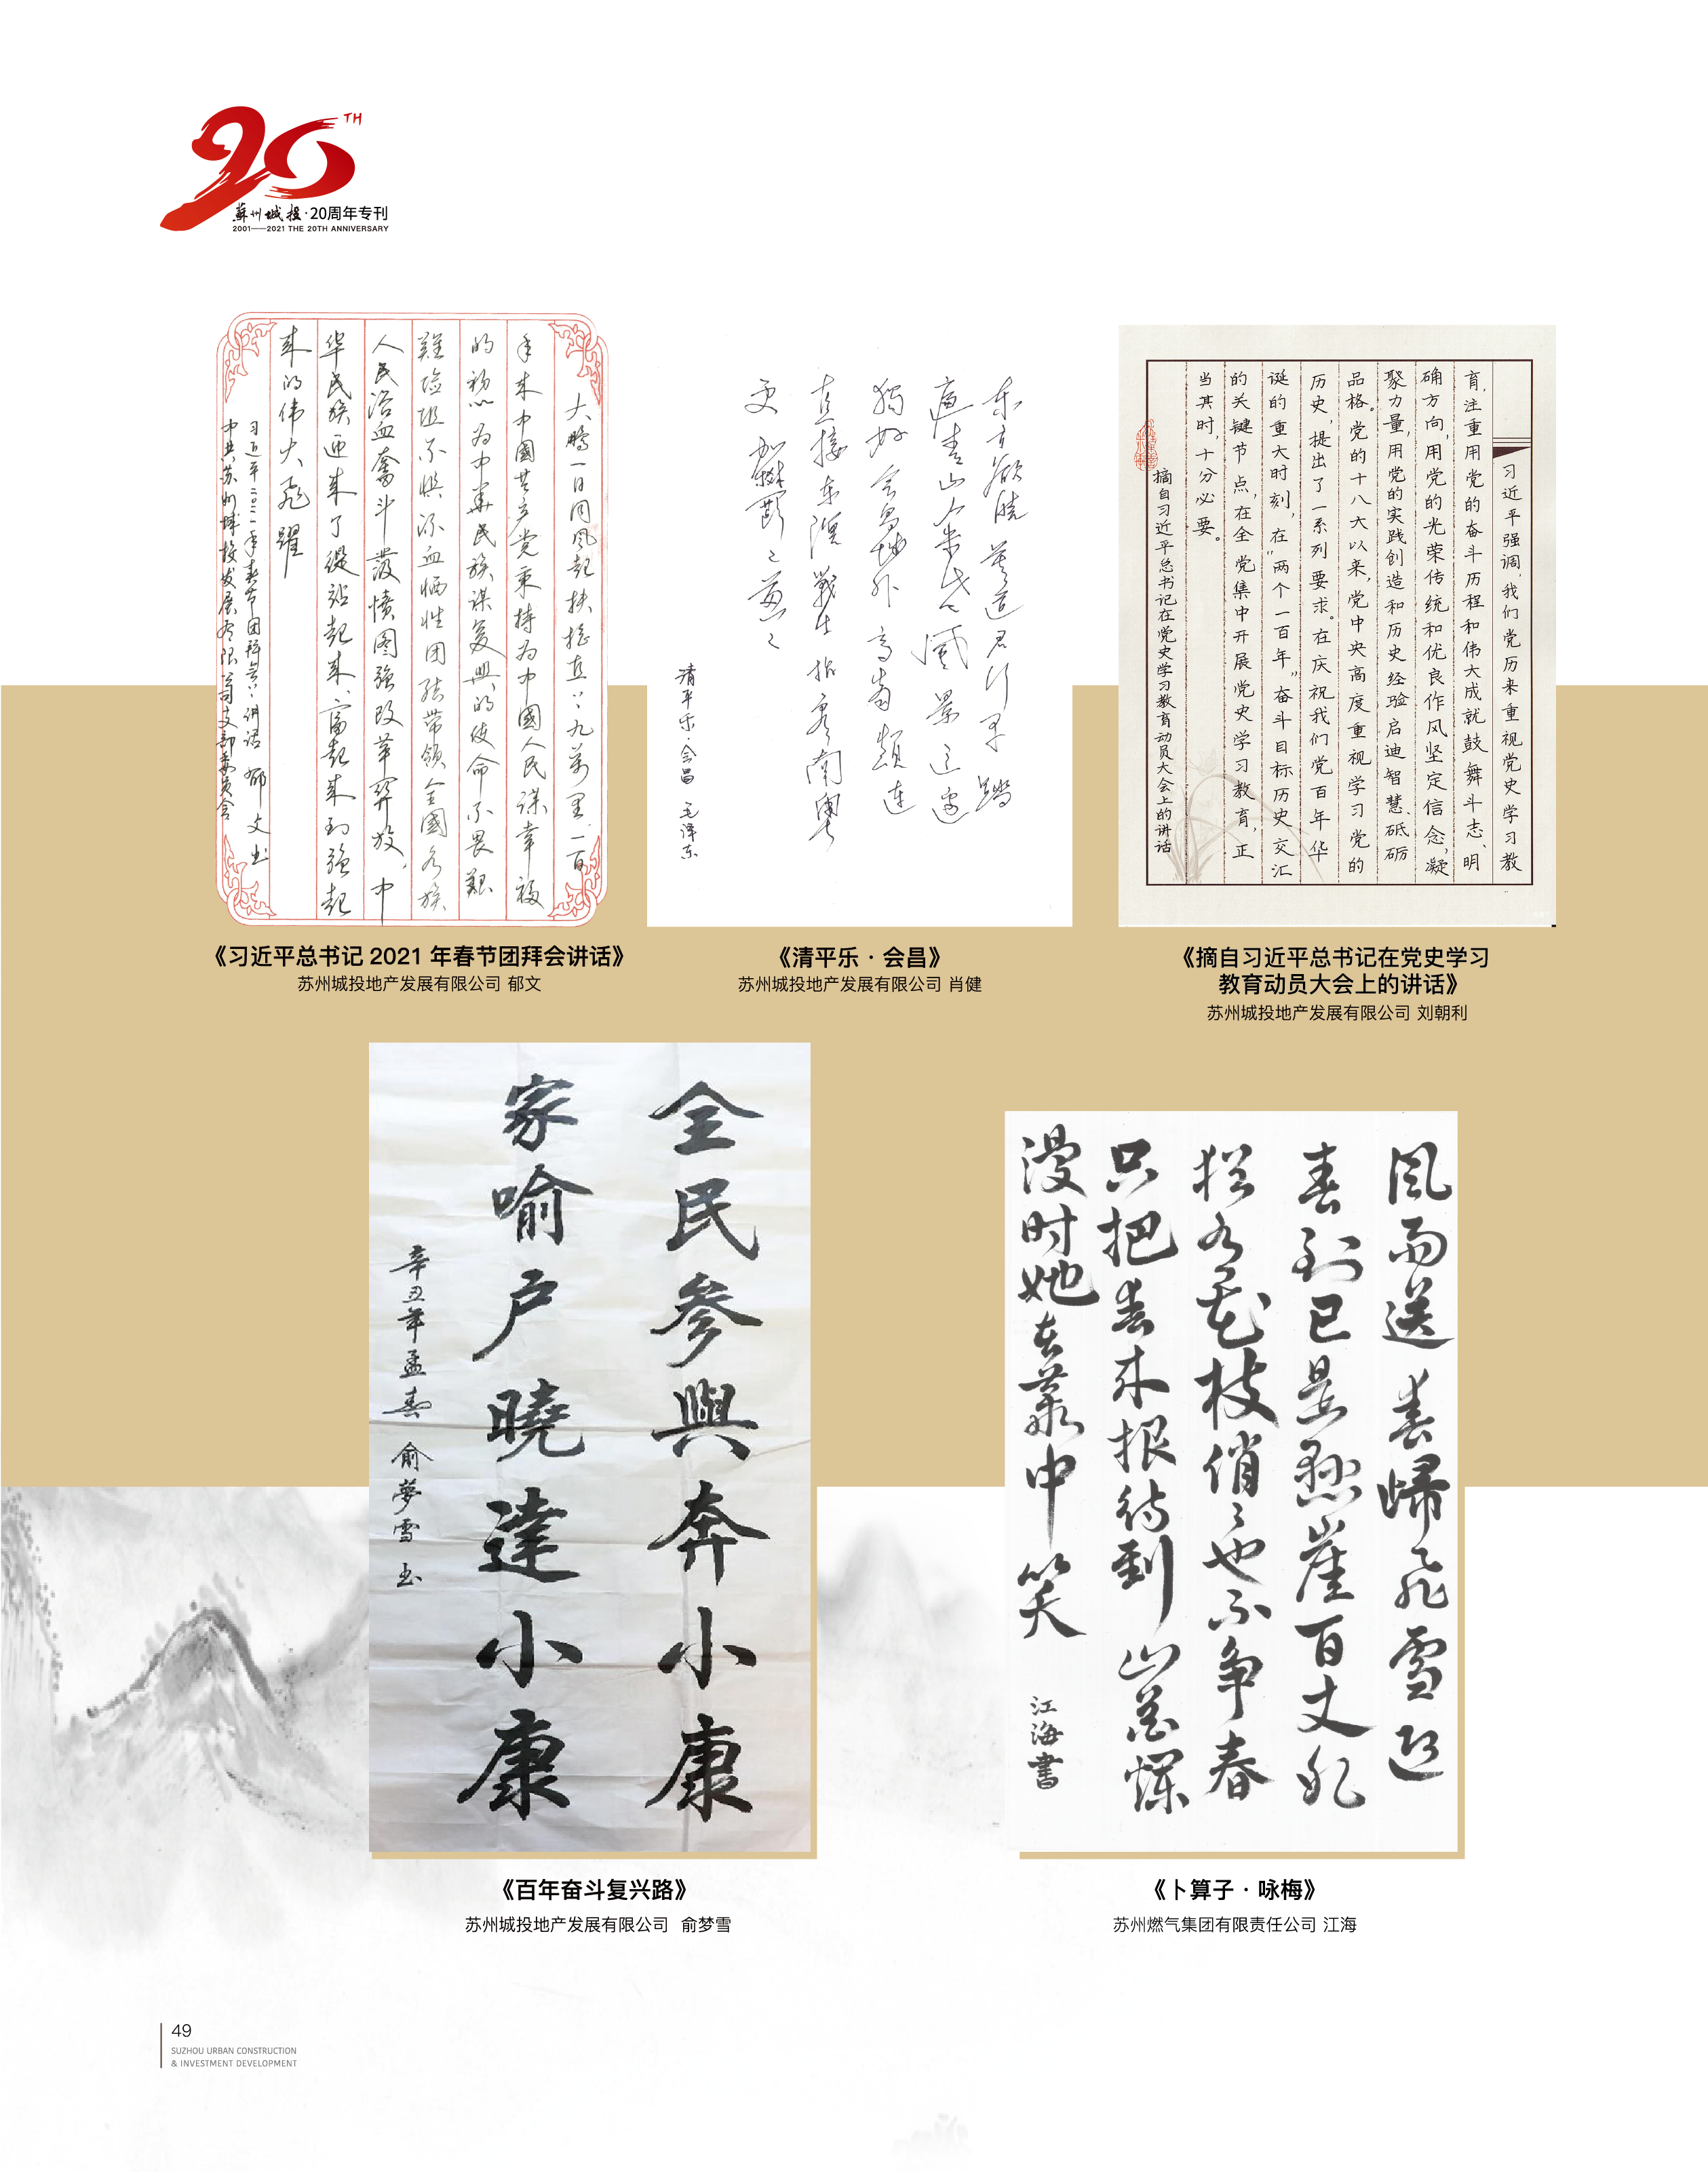 20TH
蘇州城投·20周年专刊
2001——2021 THE 20TH ANNIVERSARY
大鹏一日同风起扶摇直上九万里、一百
年来中國共产党秉持为中國人民谋幸福
的初心为中华民族谋复興的使命不畏艱
難险阻不惧流血牺牲团结带领全國各族
人民浴血奮斗發愤图强改革開放,中
华民族迎来了從站起来、富起来到强起
来的伟大飛躍
习近平2021年春节团拜会上讲话 郁文书
中共苏州城投发展有限公司支部委员会
《习近平总书记 2021 年春节团拜会讲话》
苏州城投地产发展有限公司 郁文
东方欲晓莫道君行早踏
遍青山人未老风景这邊
獨好会昌城外高峰顛连
直接东溟戰士指看南粤
更加鬱鬱葱葱
清平乐·会昌 毛泽东
《清平乐·会昌》
苏州城投地产发展有限公司 肖健
习近平强调,我们党历来重视党史学习教
育,注重用党的奋斗历程和伟大成就鼓舞斗志、明
确方向,用党的光荣传统和优良作风坚定信念,凝
聚力量,用党的实践创造和历史经验启迪智慧、砥砺
品格。党的十八大以来,党中央高度重视学习党的
历史,提出了一系列要求。在庆祝我们党百年华
诞的重大时刻,在“两个一百年”奋斗目标历史交汇
的关键节点,在全党集中开展党史学习教育,正
当其时,十分必要。
摘自习近平总书记在党史学习教育动员大会上的讲话
《摘自习近平总书记在党史学习
教育动员大会上的讲话》
苏州城投地产发展有限公司 刘朝利
全民参與奔小康
家喻户曉達小康
辛丑年孟春 俞夢雪书
《百年奋斗复兴路》
苏州城投地产发展有限公司 俞梦雪
风雨送春歸飞雪迎
春到已是懸崖百丈冰
犹有花枝俏俏也不争春
只把春来报待到山花爛
漫时她在叢中笑
江海書
《卜算子·咏梅》
苏州燃气集团有限责任公司 江海
49
SUZHOU URBAN CONSTRUCTION
& INVESTMENT DEVELOPMENT